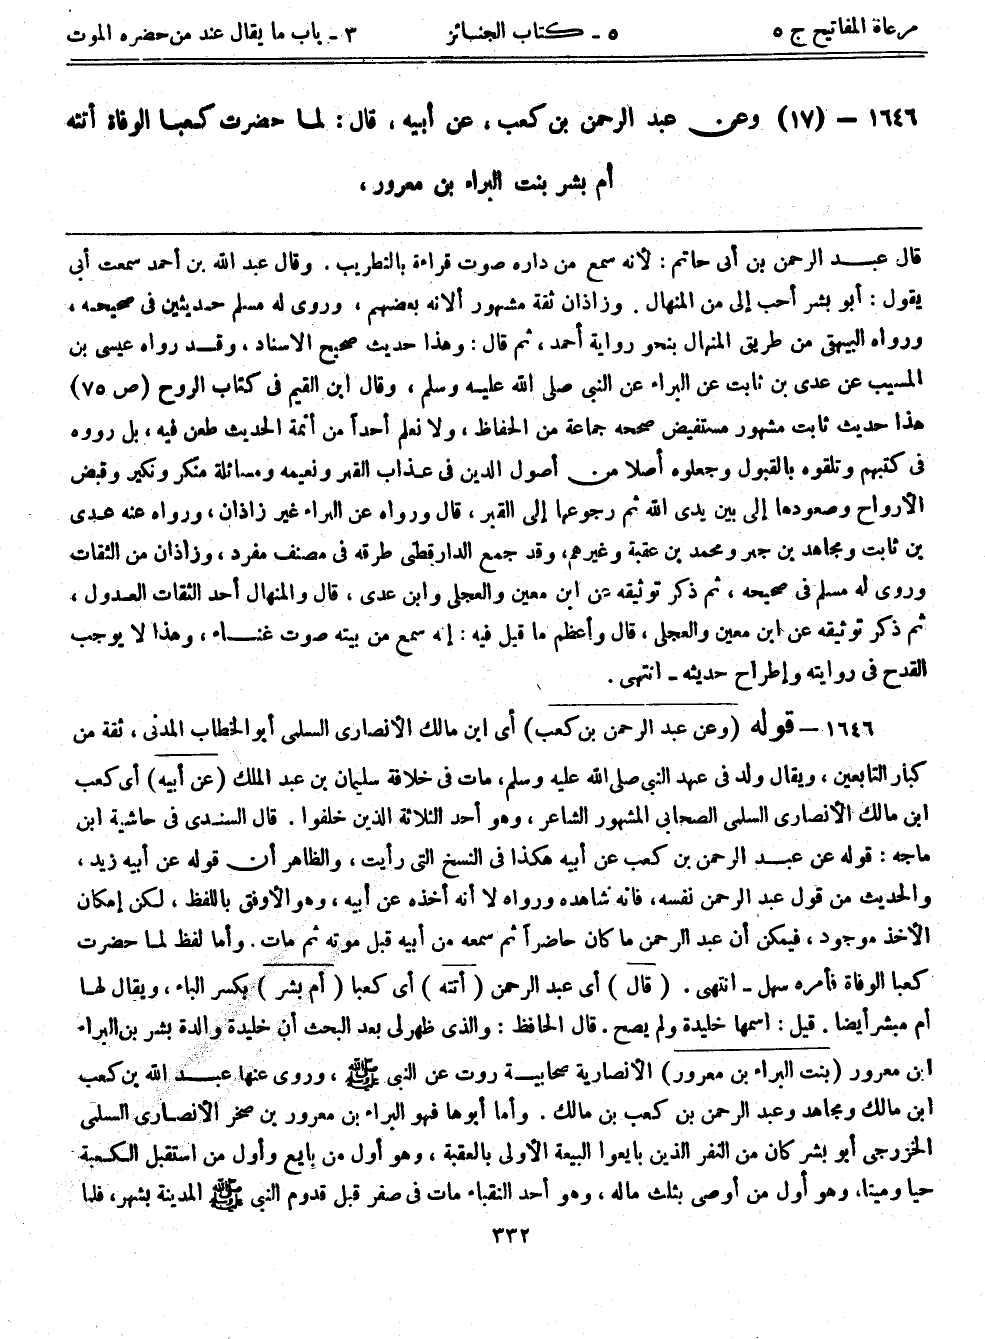 مرعاة المفاتيح ج ٥
٥ ـ كتاب الجنائز
٣ ـ باب ما يقال عند من حضره الموت
١٦٤٦ ـ (١٧) وعن عبد الرحمن بن كعب، عن أبيه، قال: لما حضرت كعبا الوفاة أتته
أم بشر بنت البراء بن معرور،
قال عبد الرحمن بن أبى حاتم: لأنه سمع من داره صوت قراءة بالتطريب. وقال عبد الله بن أحمد سمعت أبي
يقول: أبو بشر أحب إلى من المنهال. وزاذان ثقة مشهور ألانه بعضهم، وروى له مسلم حديثين فى صحيحه،
ورواه البيهقى من طريق المنهال بنحو رواية أحمد، ثم قال: وهذا حديث صحيح الاسناد، وقد رواه عيسى بن
المسيب عن عدى بن ثابت عن البراء عن النبي صلى الله عليه وسلم، وقال ابن القيم فى كتاب الروح (ص ٧٥)
هذا حديث ثابت مشهور مستفيض صححه جماعة من الحفاظ، ولا نعلم أحداً من أئمة الحديث طعن فيه، بل رووه
فى كتبهم وتلقوه بالقبول وجعلوه أصلا من أصول الدين فى عذاب القبر ونعيمه ومسائلة منكر ونكير وقبض
الأرواح وصعودها إلى بين يدى الله ثم رجوعها إلى القبر، قال ورواه عن البراء غير زاذان، ورواه عنه عدى
بن ثابت ومجاهد بن جبر ومحمد بن عقبة وغيرهم، وقد جمع الدارقطنى طرقه فى مصنف مفرد، وزاذان من الثقات
وروى له مسلم فى صحيحه، ثم ذكر توثيقه عن ابن معين والعجلى وابن عدى، قال والمنهال أحد الثقات العدول،
ثم ذكر توثيقه عن ابن معين والعجلى، قال وأعظم ما قيل فيه: إنه سمع من بيته صوت غناء، وهذا لا يوجب
القدح فى روايته وإطراح حديثه ـ انتهى.
١٦٤٦ ـ قوله (وعن عبد الرحمن بن كعب) أى ابن مالك الأنصارى السلمى أبو الخطاب المدنى، ثقة من
كبار التابعين، ويقال ولد فى عهد النبي صلى الله عليه وسلم، مات فى خلافة سليمان بن عبد الملك (عن أبيه) أى كعب
ابن مالك الأنصارى السلمى الصحابى المشهور الشاعر، وهو أحد الثلاثة الذين خلفوا. قال السندى فى حاشية ابن
ماجه: قوله عن عبد الرحمن بن كعب عن أبيه هكذا فى النسخ التى رأيت، والظاهر أن قوله عن أبيه زيد،
والحديث من قول عبد الرحمن نفسه، فانه شاهده ورواه لا أنه أخذه عن أبيه، وهو الأوفق باللفظ، لكن إمكان
الأخذ موجود، فيمكن أن عبد الرحمن ما كان حاضراً ثم سمعه من أبيه قبل موته ثم مات. وأما لفظ لما حضرت
كعبا الوفاة فأمره سهل ـ انتهى. (قال) أى عبد الرحمن (أتته) أى كعبا (أم بشر) بكسر الباء، ويقال لها
أم مبشر أيضا. قيل: اسمها خليدة ولم يصح. قال الحافظ: والذى ظهر لى بعد البحث أن خليدة والدة بشر بن البراء
ابن معرور (بنت البراء بن معرور) الأنصارية صحابية روت عن النبي ﷺ، وروى عنها عبد الله بن كعب
ابن مالك ومجاهد وعبد الرحمن بن كعب بن مالك. وأما أبوها فهو البراء بن معرور بن صخر الأنصارى السلمى
الخزرجى أبو بشر كان من النفر الذين بايعوا البيعة الأولى بالعقبة، وهو أول من بايع وأول من استقبل الكعبة
حيا وميتا، وهو أول من أوصى بثلث ماله، وهو أحد النقباء مات فى صفر قبل قدوم النبي ﷺ المدينة بشهر، فلما
٣٣٢